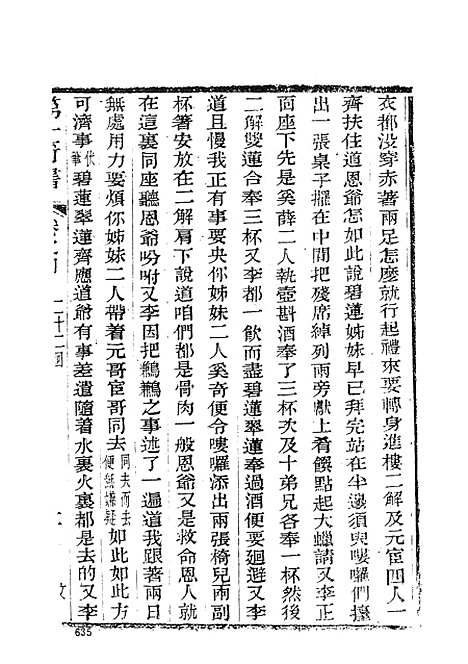 衣都没穿赤著兩足怎麽就行起禮來要轉身進樓二解及元宦四人一
齊扶住道恩爺怎如此說碧蓮姊妹早已拜完站在半邊須臾嘍囉們擡
出一張桌子擺在中間把殘席綽列兩旁獻上肴饌點起大蠟請又李正
面座下先是奚薛二人執壺斟酒奉了三杯次及十弟兄各奉一杯然後
二解雙蓮合奉三杯又李都一飲而盡碧蓮翠蓮奉過酒便要廻避又李
道且慢我正有事要央你姊妹二人奚奇便令嘍囉添出兩張椅兒兩副
杯箸安放在二解肩下說道咱們都是骨肉一般恩爺又是救命恩人就
在這裏同座聽恩爺吩咐又李因把鶼鶼之事述了一遍道我跟著兩日
無處用力要煩你姊妹二人帶着元哥宦哥同去同夫而去便無嫌疑如此如此方
可濟事碧蓮翠蓮齊應道爺有事差遣隨着水裏火裏都是去的又李
第一奇書
二十二囬
635